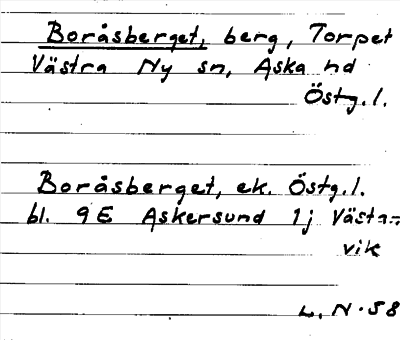 Boråsberget, berg, Torpet
Västra Ny sn, Aska hd
Östg.l.
Boråsberget, ek. Östg.l.
bl. 9E Askersund 1j Västan=
vik
L. N. 58